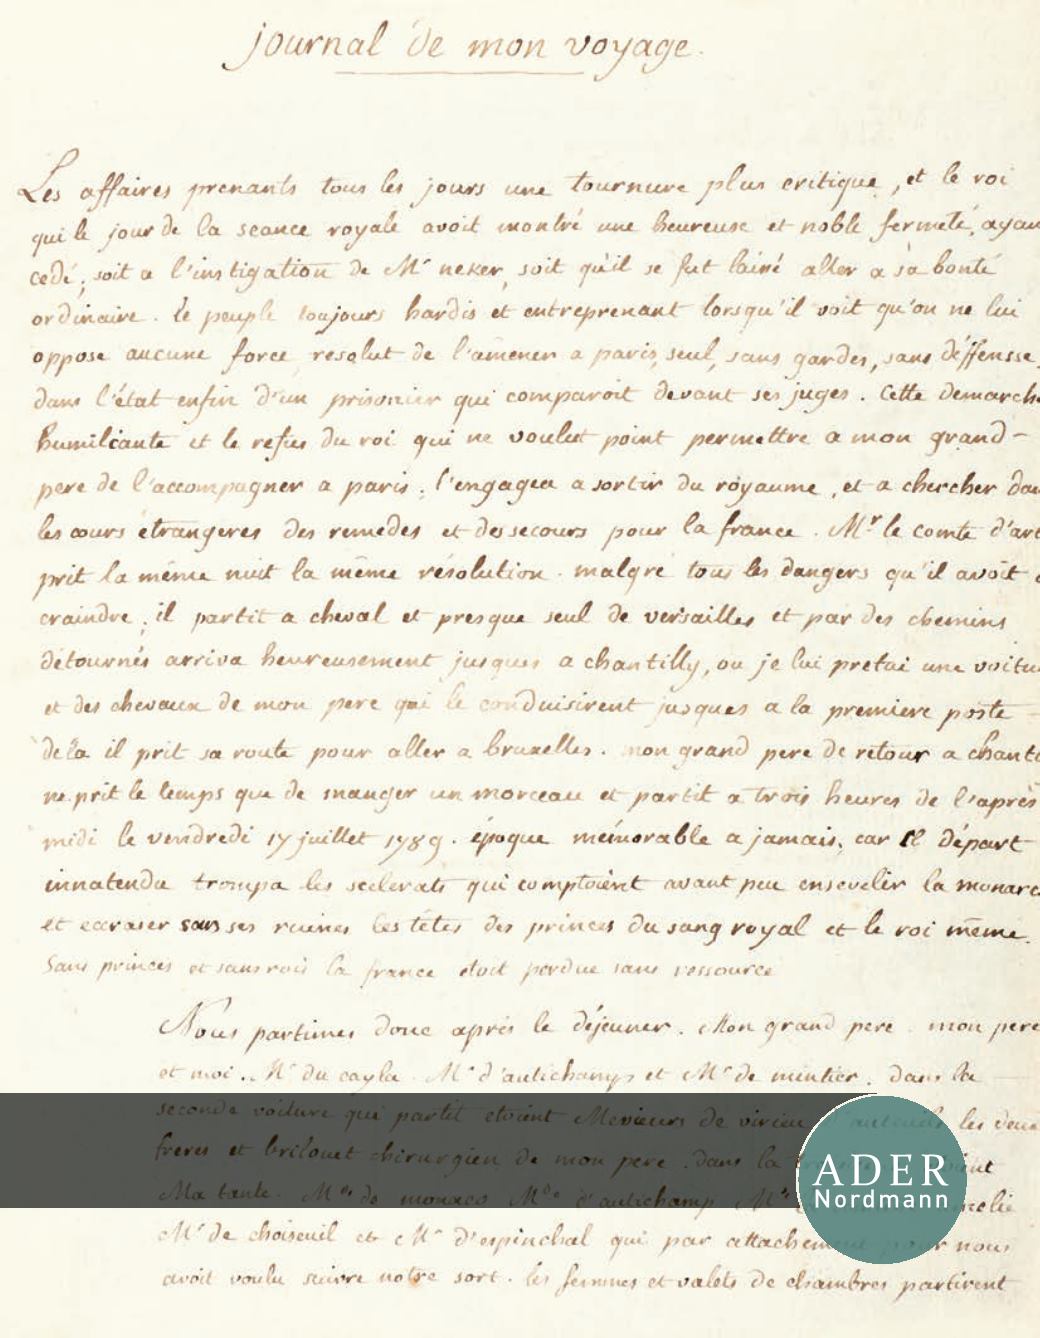 journal de mon voyage.
Les affaires prenants tous les jours une tournure plus critique, et le roi
qui le jour de la seance royale avoit montré une heureuse et noble fermeté, ayan
cedé; soit a l'instigation de Mr neker, soit qu'il se fut laissé aller a sa bonté
ordinaire. le peuple toujours hardis et entreprenant lorsqu'il voit qu'on ne lui
oppose aucune force, resolut de l'amener a paris, seul, sans gardes, sans déffensse,
dans l'état enfin d'un prisonier qui comparoit devant ses juges. Cette demarche
humiliante et le refus du roi qui ne voulut point permettre a mon grand-
pere de l'accompagner a paris; l'engagea a sortir du royaume, et a chercher dan
les cours étrangeres des remedes et des secours pour la france. Mr le comte d'art
prit la même nuit la même résolution. malgré tous les dangers qu'il avoit
craindre; il partit a cheval et presque seul de versailles et par des chemins
détournés arriva heureusement jusques a chantilly, ou je lui pretai une voitu
et des chevaux de mon pere qui le conduisirent jusques a la premiere poste
de la il prit sa route pour aller a bruxelles. mon grand pere de retour a chanti
ne prit le temps que de manger un morceau et partit a trois heures de l'après
midi le vendredi 17 juillet 1789. époque mémorable a jamais, car ce départ
innatendu trompa les scelerats qui comptoient avant peu ensevelir la monarc
et ecraser sous ses ruines les têtes des princes du sang royal et le roi même.
Sans princes et sans rois la france etoit perdue sans ressource
Nous partimes donc après le déjeuner. Mon grand pere. mon pere
et moi. Mr du cayla. Mr d'autichamp et Mr de mintier. dans la
seconde voiture qui partit etoient Messieurs de virieu d'auteuil les deux
freres et briouet chirurgien de mon pere. dans la
Ma tante. Mde de monaco Mde d'autichamp
Mr de choiseuil et Mr d'espinchal qui par attachement pour nous
avoit voulu suivre notre sort. les femmes et valets de chambres partirent
ADER
Nordmann